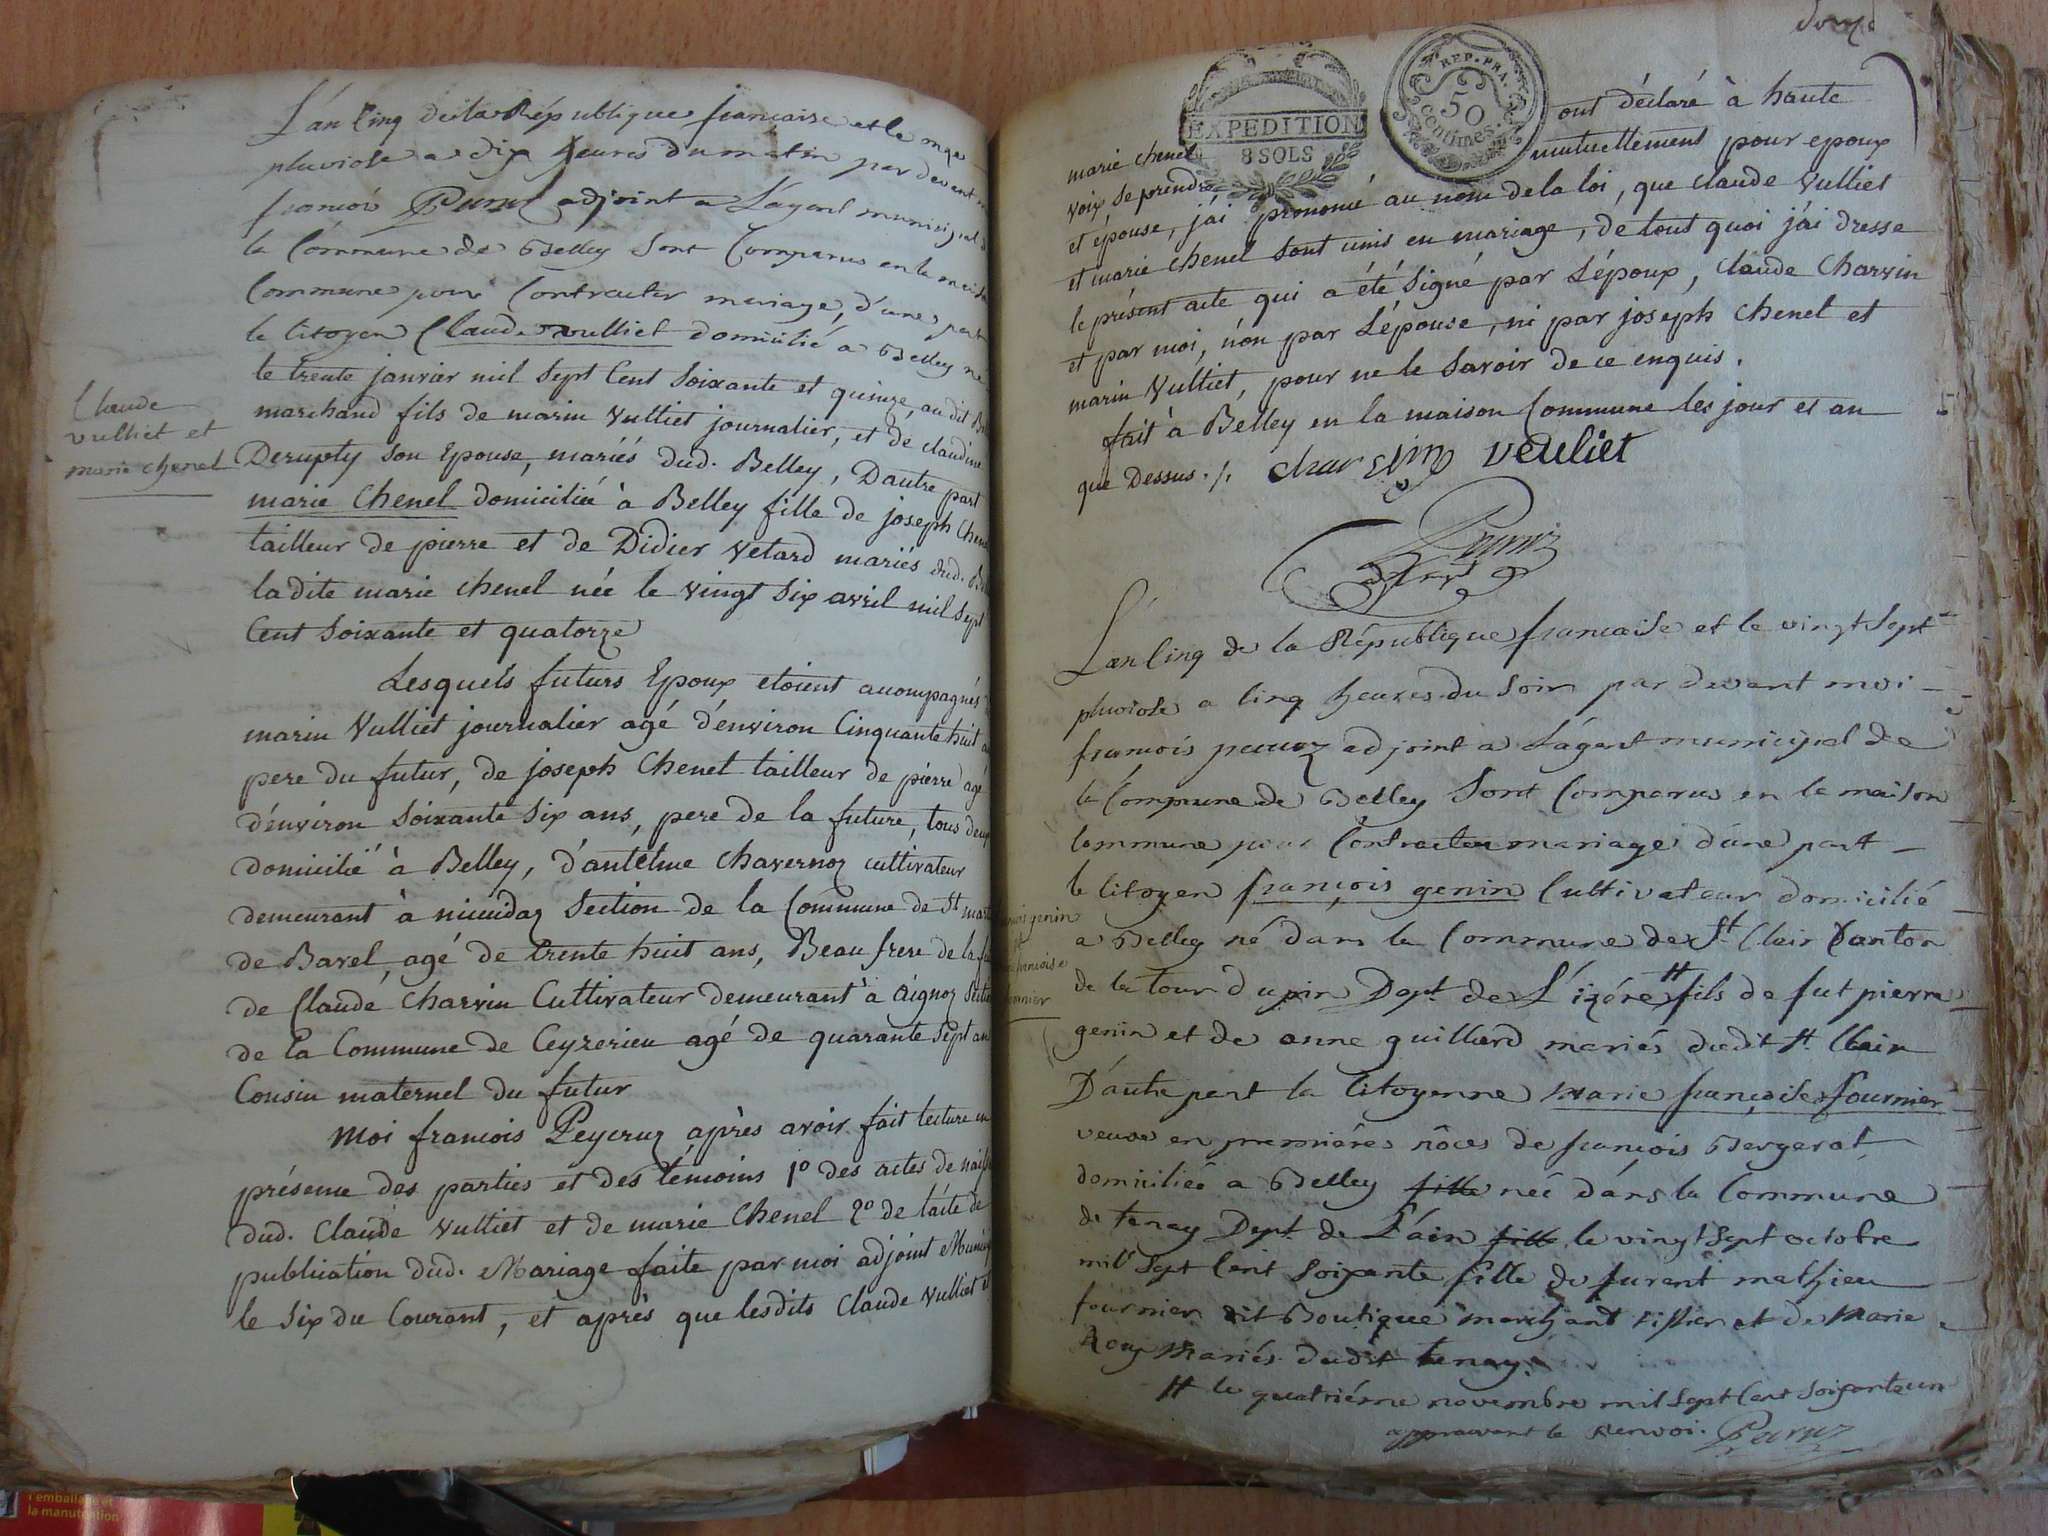 L'an Cinq de la République française et le onze
pluviose a dix heures du matin par devant
françois adjoint a L'agent municipal
la Commune de Belley Sont Comparus en la maison
Commune pour Contracter mariage, d'une part
le Citoyen Claude Vulliet domicilié a Belley né
le trente janvier mil Sept Cent Soixante et quinze, au dit
marchand fils de marin Vulliet journalier, et de claudine
Derupty Son Epouse, mariés dud. Belley, Dautre part
marie Chenel domiciliée à Belley fille de joseph Chenel
tailleur de pierre et de Didier Vetard mariés dud.
ladite marie Chenel née le vingt Six avril mil Sept
Cent Soixante et quatorze
Claude
vulliet et
marie chenel
Lesquels futurs Epoux etoient accompagnés
marin Vulliet journalier agé d'environ Cinquante huit
pere du futur, de joseph Chenel tailleur de pierre agé
d'environ Soixante Six ans, pere de la future, tous deux
domicilié à Belley, d'antelme Chavernoz cultivateur
demeurant à Section de la Commune de St
de Bavel, agé de trente huit ans, Beau frere de la
de Claude Charvin Cultivateur demeurant à Aignoz
de la Commune de Ceyzerieu agé de quarante Sept
Cousin maternel du futur
Moi francois Peycruz après avoir fait lecture en
présense des parties et des témoins 1º des actes de
dud. Claude Vulliet et de marie Chenel 2º de l'acte de
publication dud. Mariage faite par moi adjoint
le Six du Courant, et après que lesdits Claude Vulliet et
EXPEDITION
8 SOLS
REP. FRA.
50
centimes
marie Chenel ont déclaré à haute
voix Se prendre mutuellement pour epoux
et épouse, j'ai prononcé au nom de la loi, que Claude Vulliet
et marie Chenel Sont unis en mariage, de tout quoi j'ai dressé
le présent acte qui a été Signé par L'époux, Claude Charvin
et par moi, non par L'épouse, ni par joseph Chenel et
marin Vulliet, pour ne le Savoir de ce enquis.
fait à Belley en la maison Commune les jour et an
que Dessus ./. veuliet
L'an Cinq de la République francaise et le vingt Sept
pluviose a Cinq heures du Soir par devant moi
francois adjoint a L'agent municipal de
la Commune de Belley Sont Comparus en la maison
Commune pour Contracter mariage d'une part
le Citoyen françois genin Cultivateur domicilié
a Belley né dans la Commune de St Clair Canton
de la tour dupin Dept. de L'izére # fils de fut pierre
genin et de anne guillard mariés dudit St. Clair
D'autre part la Citoyenne marie françoise fournier
veuve en premiéres nôces de françois Bergerat
domiciliée a Belley fille née dans la Commune
de tenay Dept de L'ain fille le vingt Sept octobre
mil Sept Cent Soixante fille de furent mathieu
fournier dit Boutique marchand tissier et de Marie
Roy Mariés dudit tenay.
genin
francoise
# le quatriéme novembre mil Sept Cent Soixante un
approuvant le Renvoi.
l'emballage et
la manutention